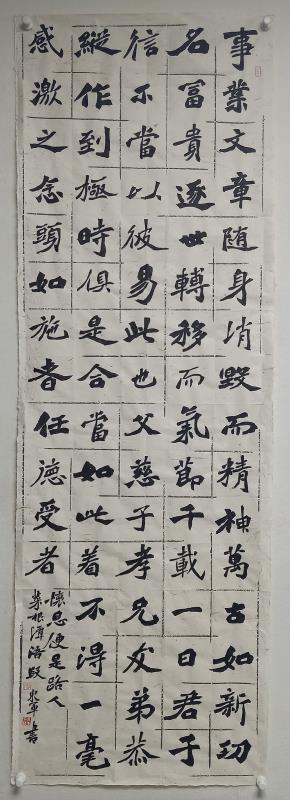 事業文章随身销毀而精神萬古如新功
名冨貴逐世轉移而氣節千載一日君子
信不當以彼易此也父慈子孝兄友弟恭
縱作到極時俱是合當如此着不得一毫
感激之念頭如施者任德受者
懷恩便是路人
菜根潭语段 軍書